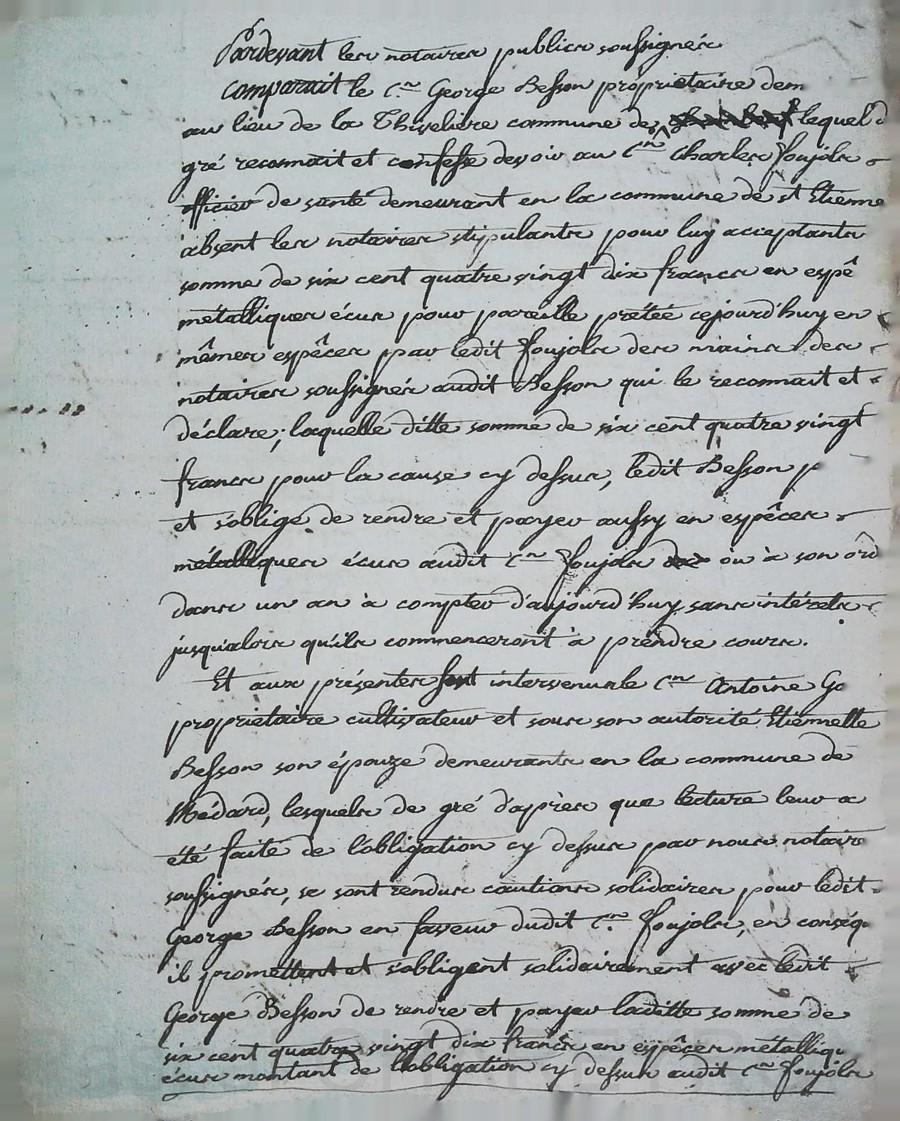 Pardevant les notaires publics soussignés
comparait le C.en George Besson propriétaire dem
au lieu de la Thivelière commune de lequel d
gré reconnait et confesse devoir au C.en Charles foujols
officier de santé demeurant en la commune de st Etienne
absent les notaires stipulants pour luy acceptants
somme de six cent quatre vingt dix francs en espê
métalliques écus pour pareille prêtée cejourd'huy en
mêmes espêces par ledit foujols des mains des
notaires soussignés audit Besson qui le reconnait et
déclare; laquelle ditte somme de six cent quatre vingt
francs pour la cause cy dessus, ledit Besson p
et s'oblige de rendre et payer aussy en espêces
métalliques écus audit C.en foujols ou à son ord
dans un an à compter d'aujourd'huy sans intérets
jusqu'alors qu'ils commenceront à prendre cours.
Et aux présentes sont intervenus le C.en Antoine Go
propriétaire cultivateur et sous son autorité Etiennette
Besson son épouze demeurants en la commune de
Médard, lesquels de gré d'après que lecture leur a
été faite de l'obligation cy dessus par nous notaire
soussignés, se sont rendus cautions solidaires pour ledit
George Besson en faveur dudit C.en foujols, en conséq
il promettent et s'obligent solidairement avec ledit
George Besson de rendre et payer laditte somme de
six cent quatre vingt dix francs en espêces métalliqu
écus montant de l'obligation cy dessus audit C.en foujols